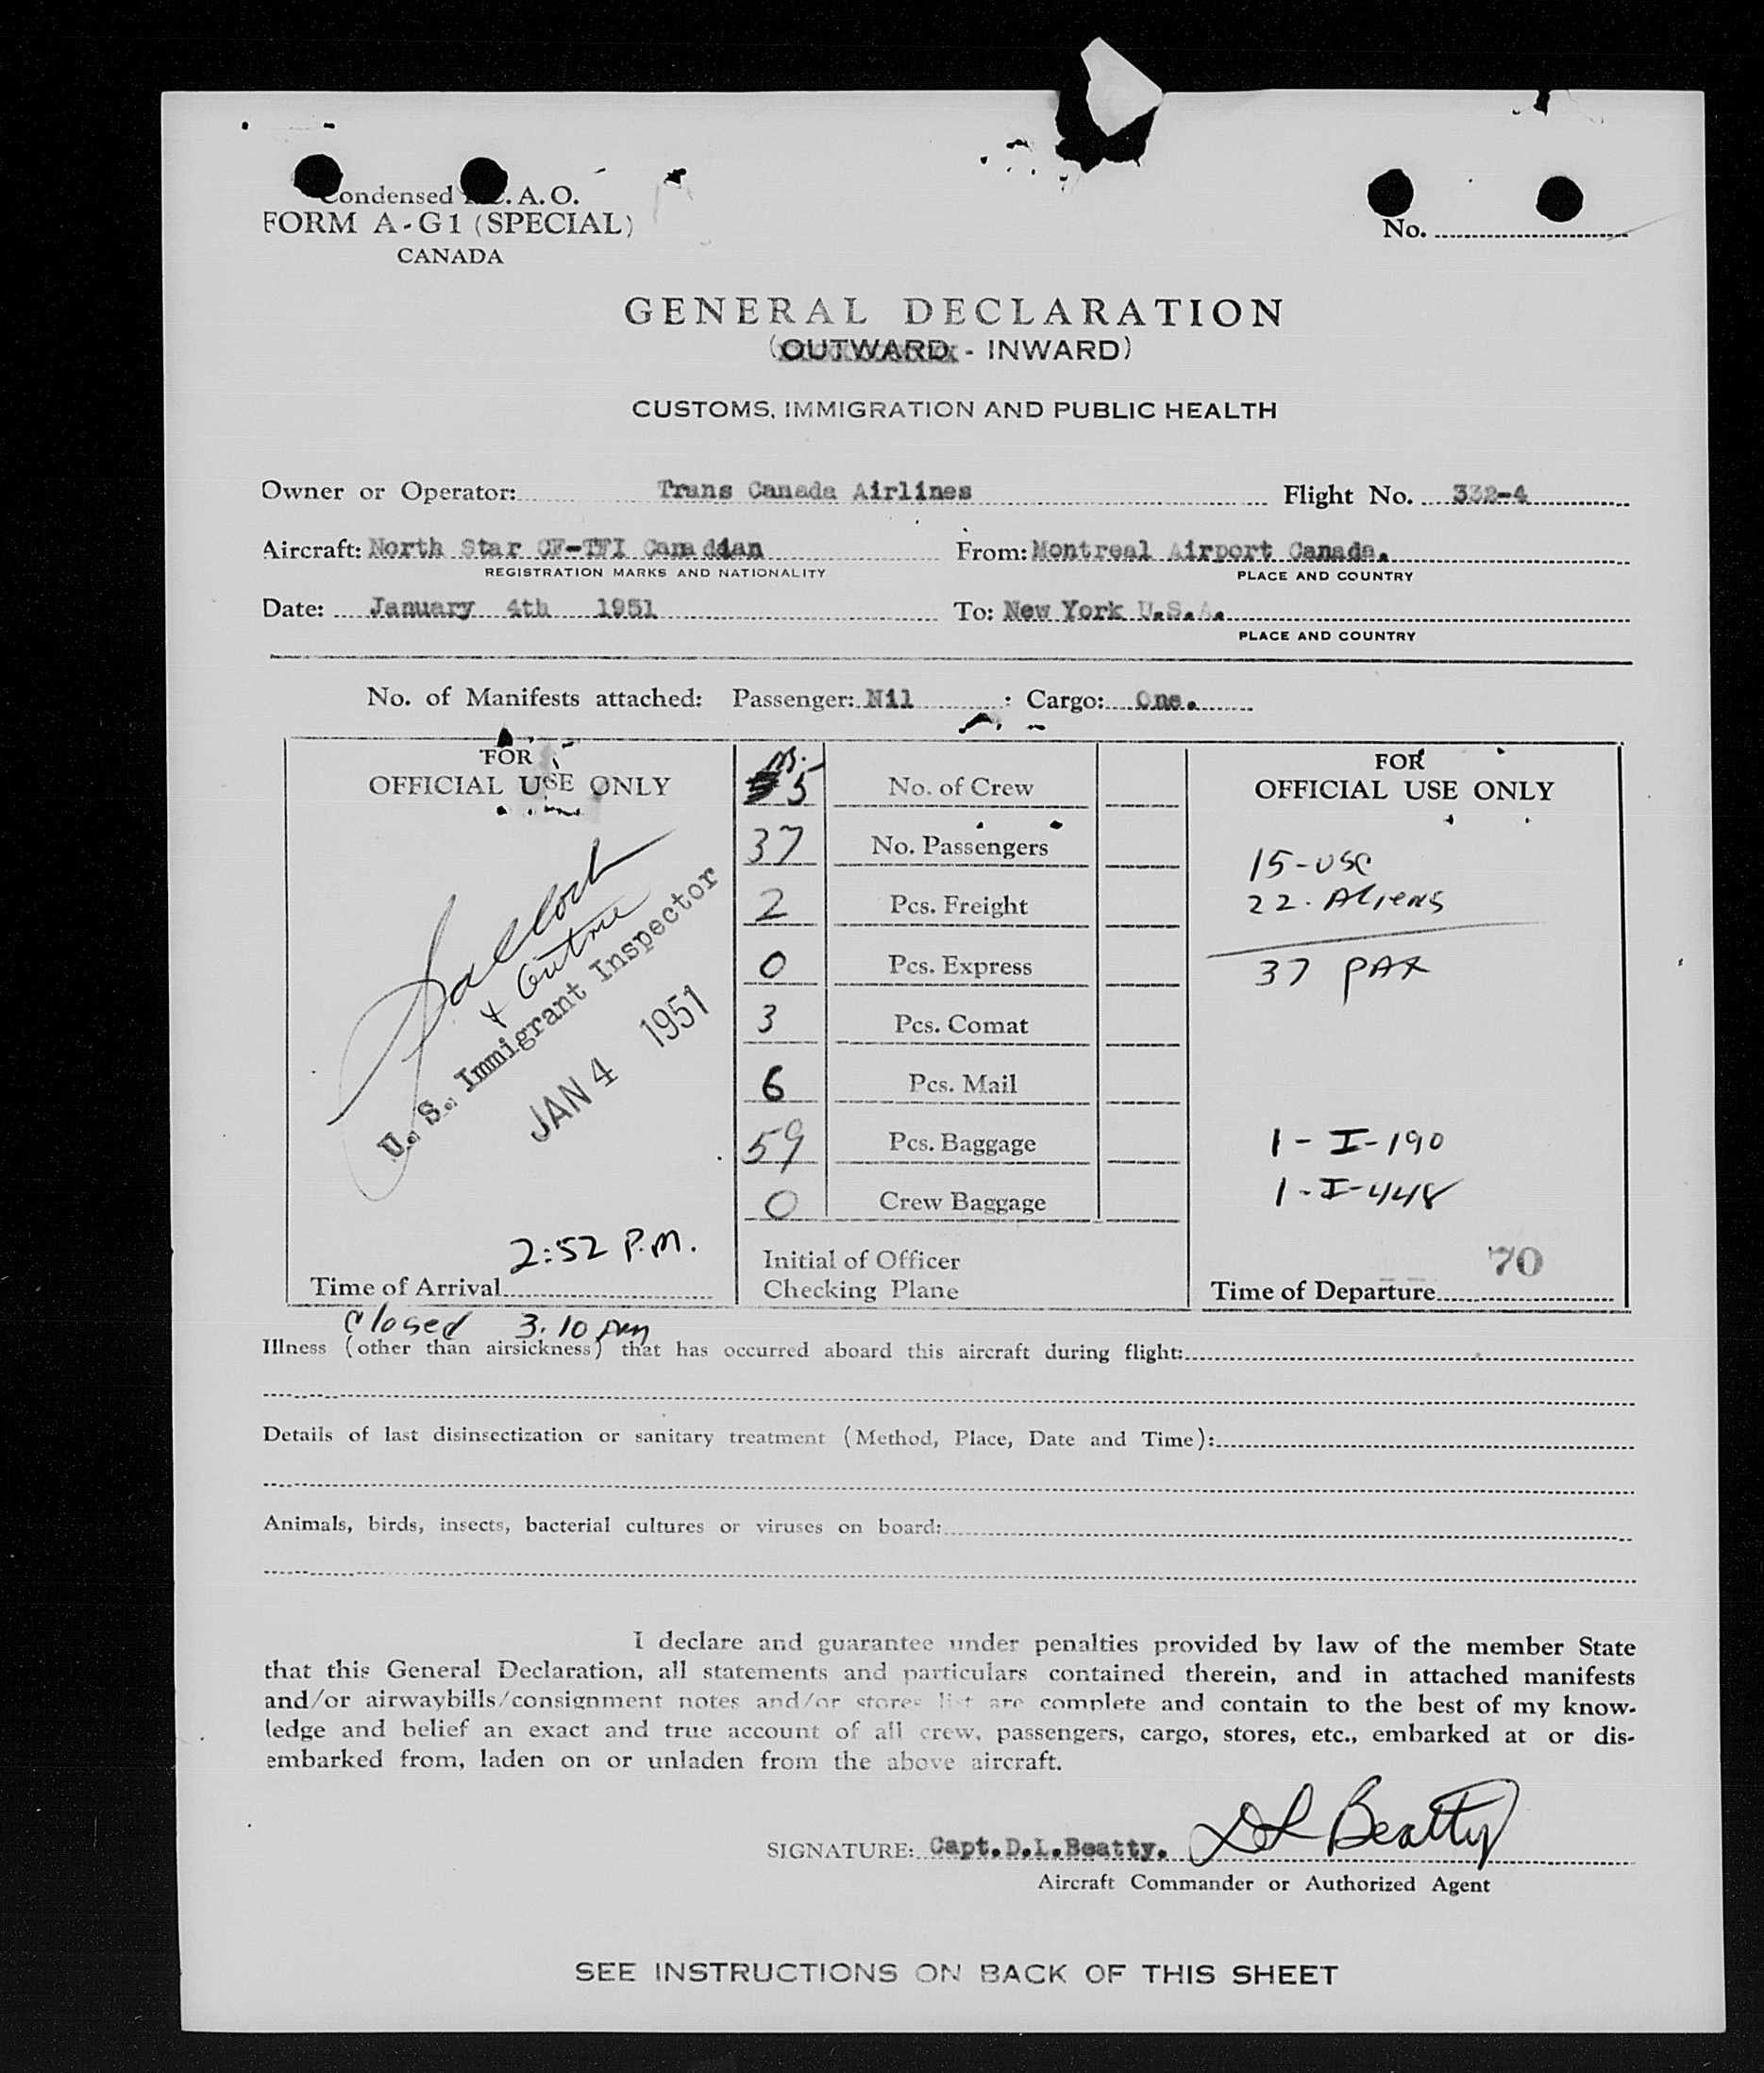 Condensed I.C.A.O.
FORM A-G1 (SPECIAL)
CANADA
No.
GENERAL DECLARATION
(OUTWARD - INWARD)
CUSTOMS, IMMIGRATION AND PUBLIC HEALTH
Owner or Operator: Trans Canada Airlines Flight No. 332-4
Aircraft: North Star CF-TFI Canadian From: Montreal Airport Canada.
REGISTRATION MARKS AND NATIONALITY PLACE AND COUNTRY
Date: January 4th 1951 To: New York U.S.A.
PLACE AND COUNTRY
No. of Manifests attached: Passenger: Nil : Cargo: One.
FOR
OFFICIAL USE ONLY
U. S. Immigrant Inspector
JAN 4 1951
2:52 P.M.
Time of Arrival
closed 3.10 pm
5 No. of Crew
37 No. Passengers
2 Pcs. Freight
0 Pcs. Express
3 Pcs. Comat
6 Pcs. Mail
59 Pcs. Baggage
0 Crew Baggage
Initial of Officer
Checking Plane
FOR
OFFICIAL USE ONLY
15-USC
22. Aliens
37 PAX
1 - I-190
1 - I-448
70
Time of Departure
Illness (other than airsickness) that has occurred aboard this aircraft during flight:
Details of last disinsectization or sanitary treatment (Method, Place, Date and Time):
Animals, birds, insects, bacterial cultures or viruses on board:
I declare and guarantee under penalties provided by law of the member State
that this General Declaration, all statements and particulars contained therein, and in attached manifests
and/or airwaybills/consignment notes and/or stores list are complete and contain to the best of my know-
ledge and belief an exact and true account of all crew, passengers, cargo, stores, etc., embarked at or dis-
embarked from, laden on or unladen from the above aircraft.
SIGNATURE: Capt.D.L.Beatty. DL Beatty
Aircraft Commander or Authorized Agent
SEE INSTRUCTIONS ON BACK OF THIS SHEET